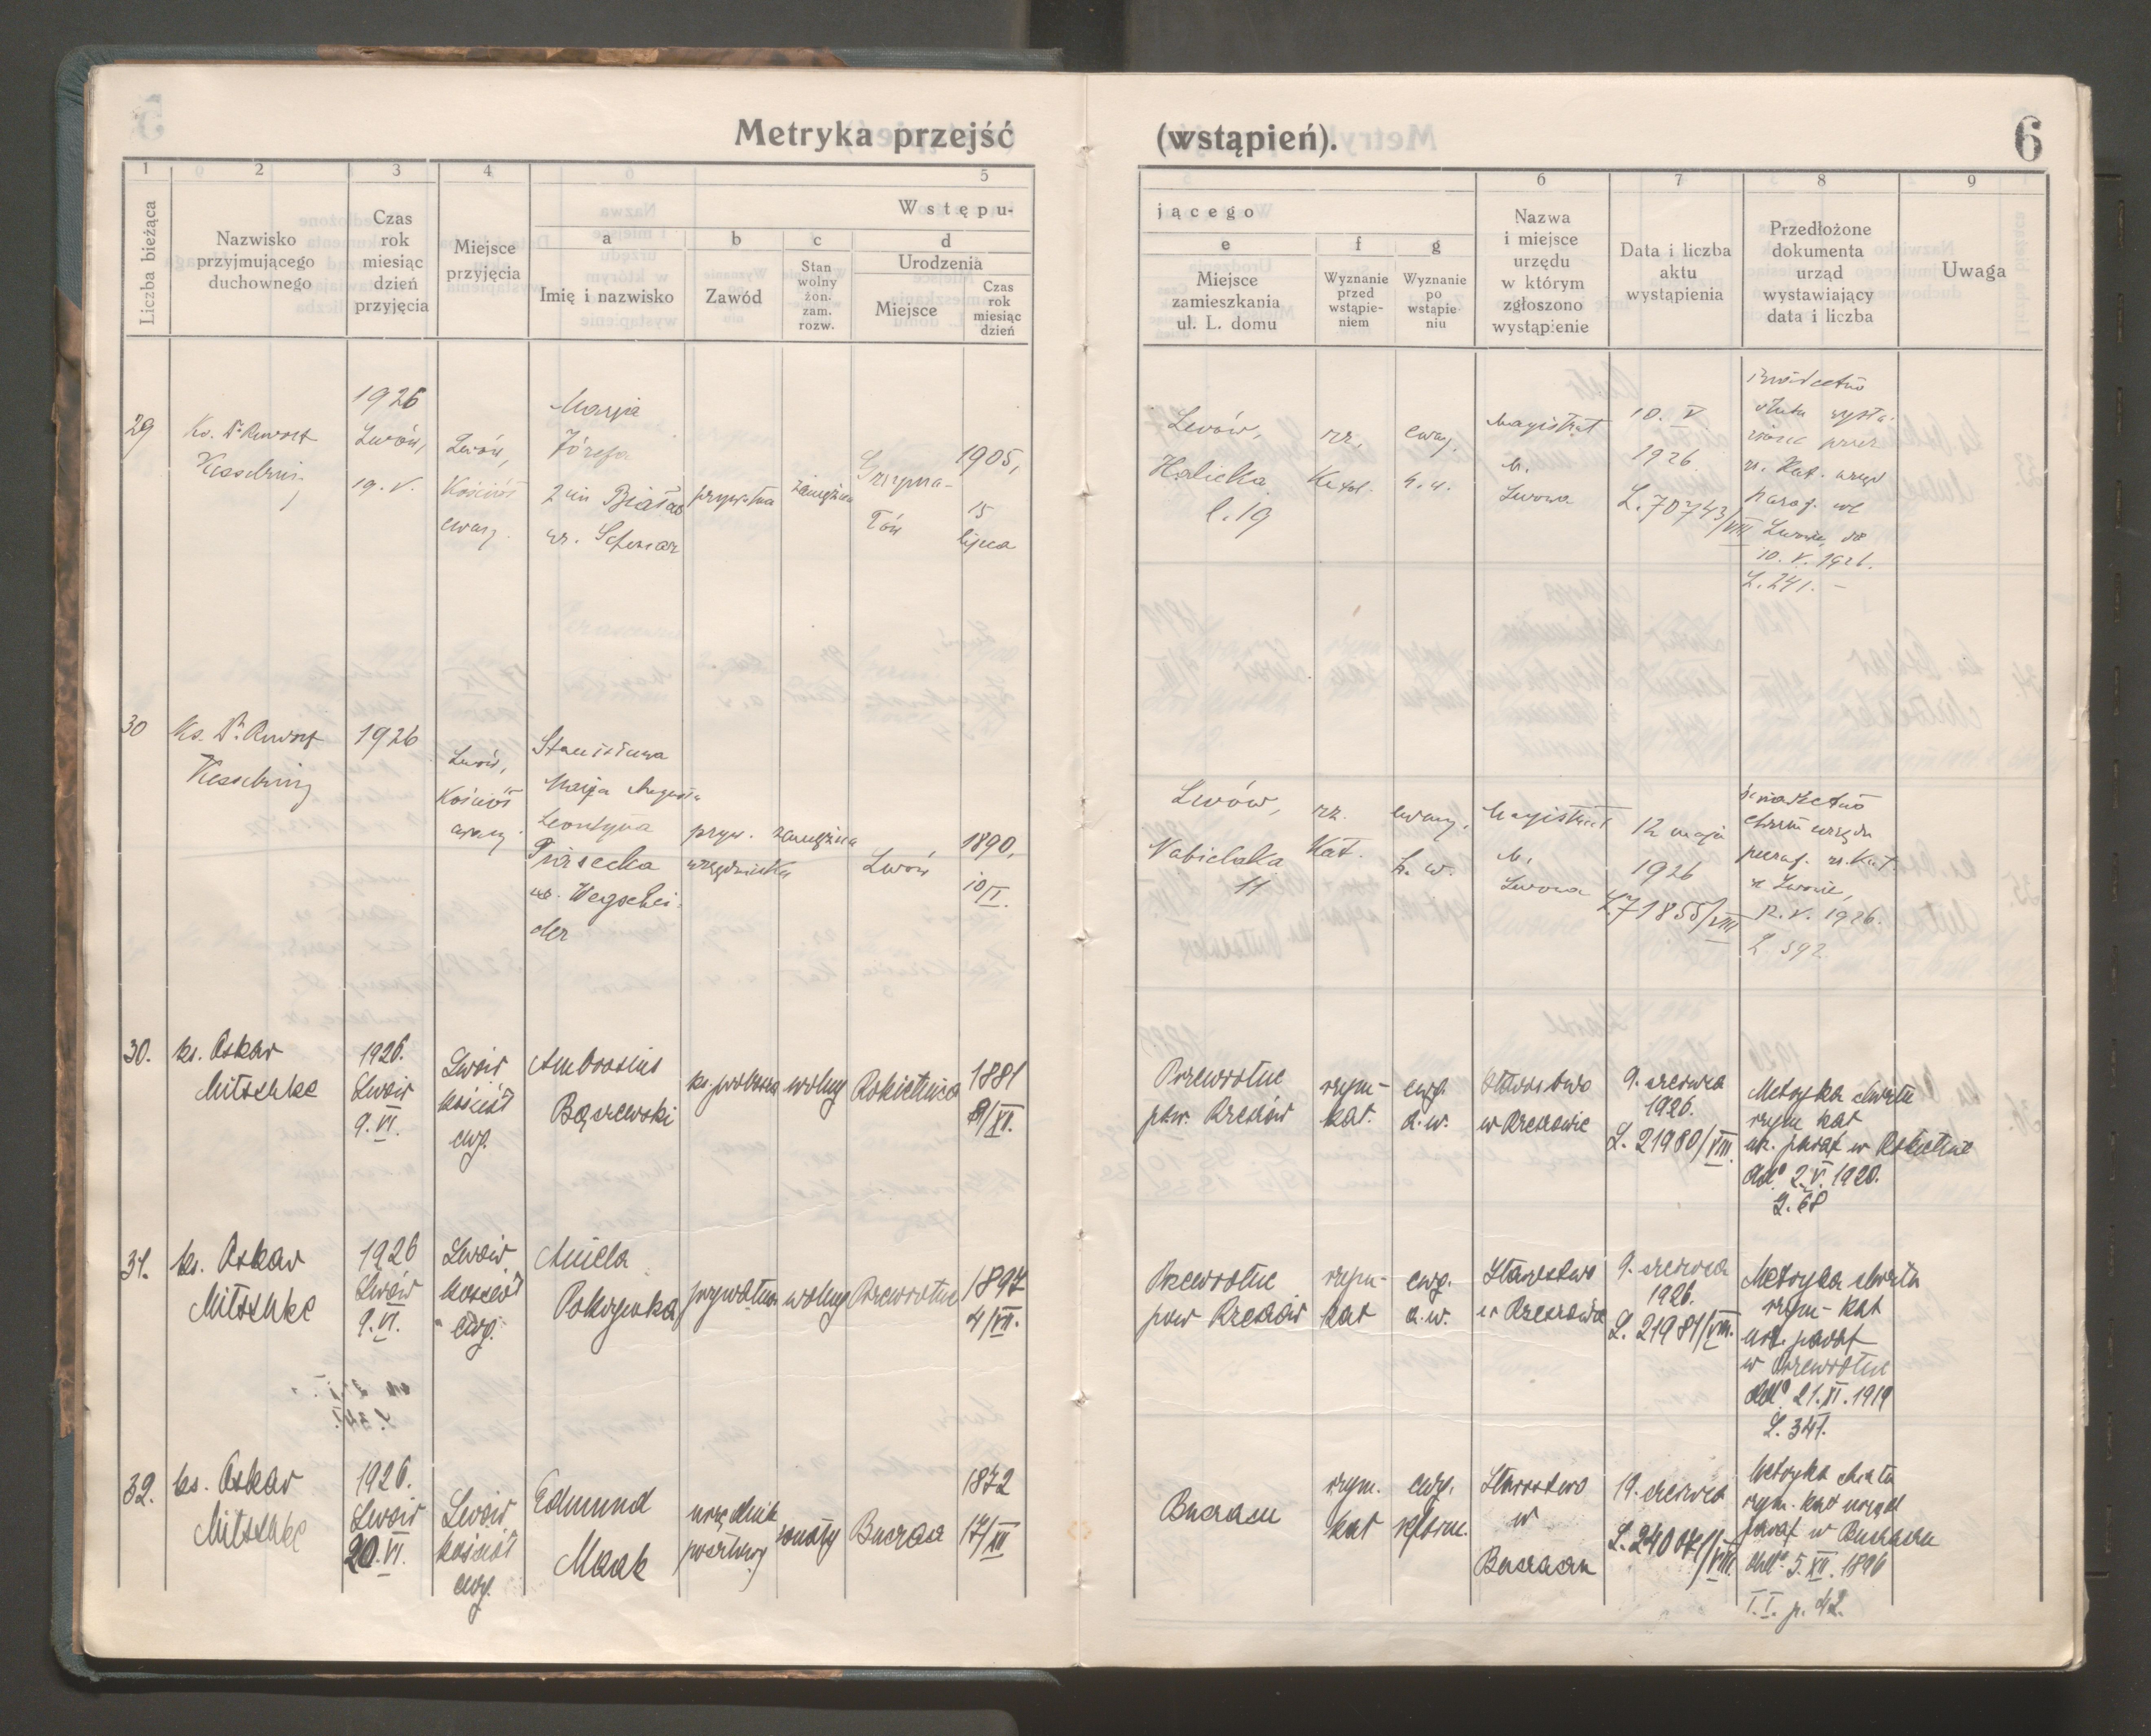 Metryka przejść (wstąpień).
6
1 2 3 4 5 6 7 8 9
Liczba bieżąca
Nazwisko
przyjmującego
duchownego
Czas
rok
miesiąc
dzień
przyjęcia
Miejsce
przyjęcia
Wstępu-
jącego
a
Imię i nazwisko
b
Zawód
c
Stan
wolny
żon.
zam.
rozw.
d
Urodzenia
Miejsce
Czas
rok
miesiąc
dzień
e
Miejsce
zamieszkania
ul. L. domu
f
Wyznanie
przed
wstąpie-
niem
g
Wyznanie
po
wstąpie-
niu
Nazwa
i miejsce
urzędu
w którym
zgłoszono
wystąpienie
Data i liczba
aktu
wystąpienia
Przedłożone
dokumenta
urząd
wystawiający
data i liczba
Uwaga
29
Ks. Dr
Kesselring
1926
Lwów,
19. V.
Lwów,
Kościół
ewang.
Marja
Józefa
prywatna
zamężna
Grzyma-
łów
1905,
15
lipca
Lwów,
Halicka
l. 19
rz.
Katol.
ewang.
h. w.
Magistrat
m.
Lwowa
10. V.
1926.
L. 70743/VIII
paraf. we
Lwowie
10. V. 1926.
L. 241. –
30
Ks. Dr
Kesselring
1926
Lwów,
Kościół
ewang.
Stanisława
Marja Augusta
Leontyna
ur. Wegschei-
der
pryw.
urzędniczka
zamężna
Lwów
1890,
10
I.
Lwów,
Nabielaka
11
rz.
Kat.
ewang.
h. w.
Magistrat
m.
Lwowa
12 maja
1926
L. 71855/VIII
świadectwo
chrztu urzędu
paraf. rz. kat.
we Lwowie,
12. V. 1926.
L. 592
30.
ks. Oskar
Mitschke
1926.
Lwów
9. VI.
Lwów
kościół
ewg.
Ambrosius
Bączewski
wolny
Rokietnica
1881
8/XII.
Przewrotne
pow. Rzeszów
rzym-
kat.
ewg.
a. w.
Starostwo
w Rzeszowie
9. czerwca
1926.
L. 21980/VIII.
Metryka chrztu
rzym kat
urz. paraf w Rokietnie
2. V. 1920.
L. 68
31.
ks. Oskar
Mitschke
1926
Lwów
9. VI.
Lwów
kościół
ewg.
Aniela
Pokrywka
prywatna
wolny
Przewrotne
1897
4/VII.
Przewrotne
pow Rzeszów
rzym-
kat
ewg.
a. w.
Starostwo
w Rzeszowie
9. czerwca
1926.
L. 21981/VIII.
Metryka chrztu
rzym-kat
urz. paraf
w Przewrotne
21. XI. 1919
L. 341.
32.
ks. Oskar
Mitschke
1926.
Lwów
20. VI.
Lwów
kościół
ewg.
Edmund
urzędnik
pocztowy
żonaty
Buczacz
1872
17/XII
rzym.
kat
ewg.
reform.
Starostwo
w
19. czerwca
Metryka chrztu
rzym. kat urząd
paraf w
5. XII. 1896
T. I. p. 42.